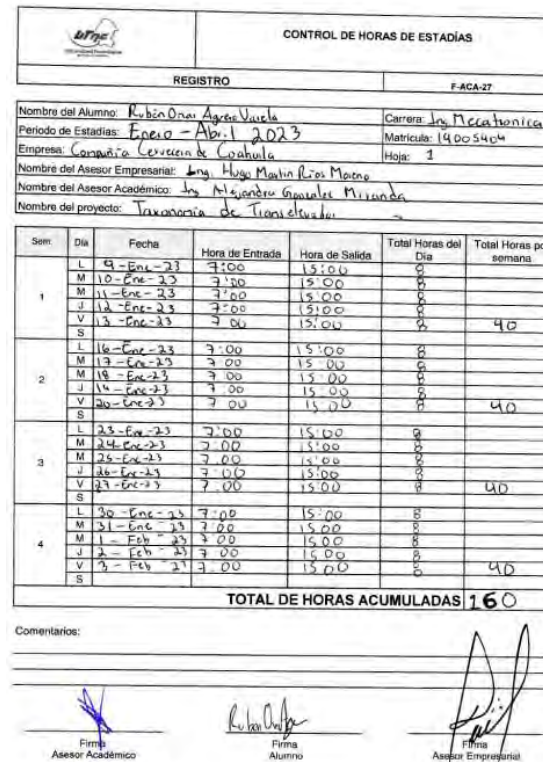 utnc
CONTROL DE HORAS DE ESTADÍAS
REGISTRO F-ACA-27
Nombre del Alumno: Rubén Omar Agrero Varela Carrera: Ing Mecatronica
Periodo de Estadías: Enero - Abril 2023 Matricula: 19005404
Empresa: Compañia Cervecera de Coahuila Hoja: 1
Nombre del Asesor Empresarial: Ing. Hugo Martin Rios Moreno
Nombre del Asesor Académico: Ing Alejandra Gonzalez Miranda
Nombre del proyecto: Taxonomia de Transelevador
Sem. Día Fecha Hora de Entrada Hora de Salida Total Horas del Día Total Horas por semana
1
L 9-Ene-23 7:00 15:00 8
M 10-Ene-23 7:00 15:00 8
M 11-Ene-23 7:00 15:00 8
J 12-Ene-23 7:00 15:00 8
V 13-Ene-23 7:00 15:00 8 40
S
2
L 16-Ene-23 7:00 15:00 8
M 17-Ene-23 7:00 15:00 8
M 18-Ene-23 7:00 15:00 8
J 19-Ene-23 7:00 15:00 8
V 20-Ene-23 7:00 15:00 8 40
S
3
L 23-Ene-23 7:00 15:00 8
M 24-Ene-23 7:00 15:00 8
M 25-Ene-23 7:00 15:00 8
J 26-Ene-23 7:00 15:00 8
V 27-Ene-23 7:00 15:00 8 40
S
4
L 30-Ene-23 7:00 15:00 8
M 31-Ene-23 7:00 15:00 8
M 1-Feb-23 7:00 15:00 8
J 2-Feb-23 7:00 15:00 8
V 3-Feb-23 7:00 15:00 8 40
S
TOTAL DE HORAS ACUMULADAS 160
Comentarios:
Firma Firma Firma
Asesor Académico Alumno Asesor Empresarial